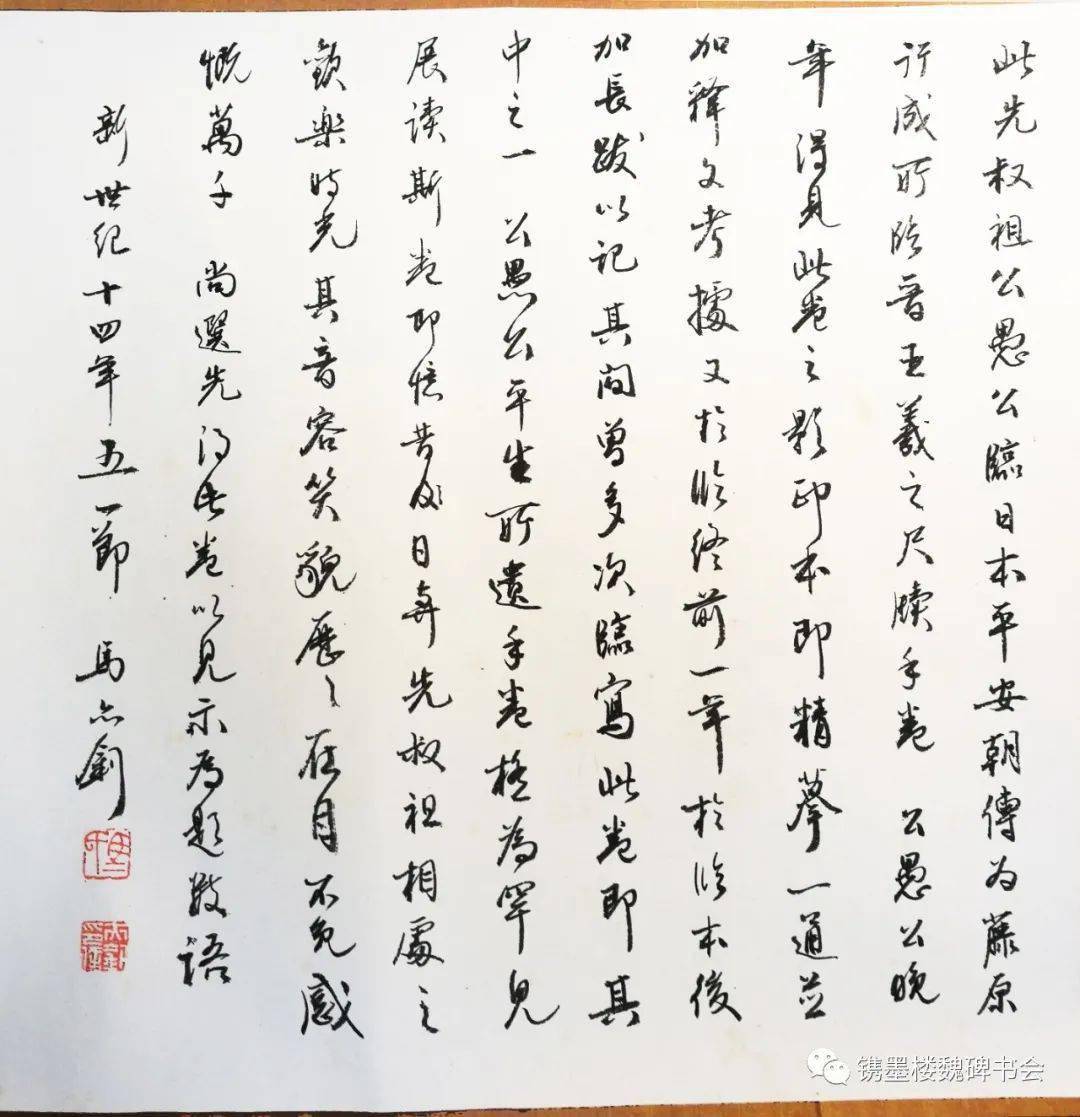 此先叔祖公愚公臨日本平安朝傳为藤原
行成所臨晉王羲之尺牘手卷 公愚公晚
年得見此卷之影印本即精摹一通並
加釋文考據又於临终前一年於临本後
加長跋以记其间曾多次臨寫此卷即其
中之一 公愚公平生所遺手卷極為罕見
展读斯卷即憶昔日與先叔祖相處之
歡樂時光其音容笑貌歷〻在目不免感
慨萬千 尚選先得此卷以見示为题數語
新世纪十四年五一節 馬亦釗
镌墨楼魏碑书会